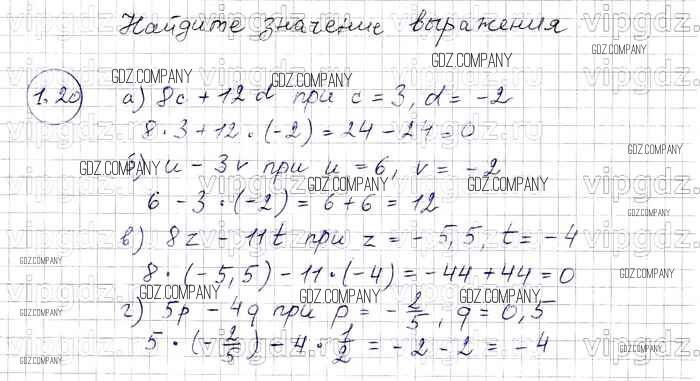 Найдите значение выражения
1.20
а) 8c + 12d при c = 3, d = -2
8 · 3 + 12 · (-2) = 24 - 24 = 0
б) u - 3v при u = 6, v = -2
6 - 3 · (-2) = 6 + 6 = 12
в) 8z - 11t при z = -5,5, t = -4
8 · (-5,5) - 11 · (-4) = -44 + 44 = 0
г) 5p - 4q при p = -2/5, q = 0,5
5 · (-2/5) - 4 · 1/2 = -2 - 2 = -4
GDZ.COMPANY
vipgdz.ru